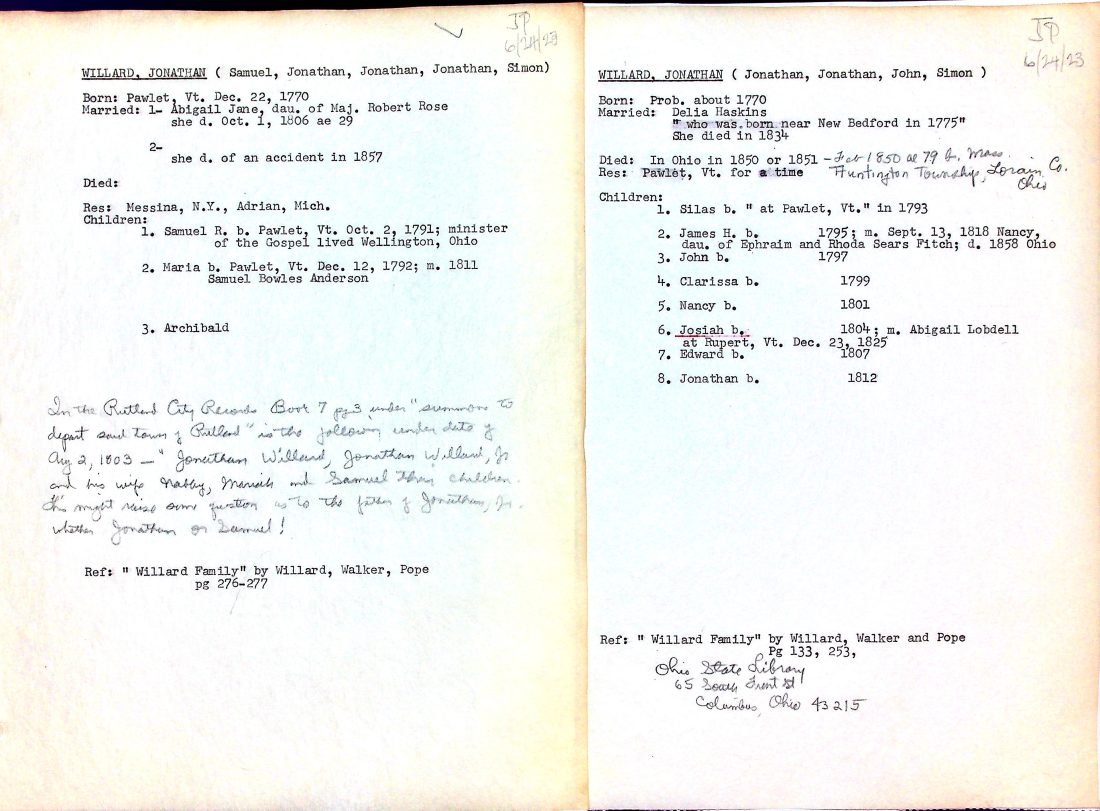 JP
6/24/23
WILLARD, JONATHAN ( Samuel, Jonathan, Jonathan, Jonathan, Simon)
Born: Pawlet, Vt. Dec. 22, 1770
Married: 1- Abigail Jane, dau. of Maj. Robert Rose
she d. Oct. 1, 1806 ae 29
2-
she d. of an accident in 1857
Died:
Res: Messina, N.Y., Adrian, Mich.
Children:
1. Samuel R. b. Pawlet, Vt. Oct. 2, 1791; minister
of the Gospel lived Wellington, Ohio
2. Maria b. Pawlet, Vt. Dec. 12, 1792; m. 1811
Samuel Bowles Anderson
3. Archibald
In the Rutland City Records Book 7 pg 3 under "summons to
depart said town of Rutland" is the following under date of
Aug 2, 1803 — "Jonathan Willard, Jonathan Willard, Jr
and his wife Nabby, Mariah and Samuel their children.
This might raise some question as to the father of Jonathan, Jr.
whether Jonathan or Samuel!
Ref: " Willard Family" by Willard, Walker, Pope
pg 276-277
JP
6/24/23
WILLARD, JONATHAN ( Jonathan, Jonathan, John, Simon )
Born: Prob. about 1770
Married: Delia Haskins
" who was born near New Bedford in 1775"
She died in 1834
Died: In Ohio in 1850 or 1851 - Feb 1850 ae 79 b. Mass.
Res: Pawlet, Vt. for a time Huntington Township, Lorain Co. Ohio
Children:
1. Silas b. " at Pawlet, Vt." in 1793
2. James H. b. 1795; m. Sept. 13, 1818 Nancy,
dau. of Ephraim and Rhoda Sears Fitch; d. 1858 Ohio
3. John b. 1797
4. Clarissa b. 1799
5. Nancy b. 1801
6. Josiah b. 1804; m. Abigail Lobdell
at Rupert, Vt. Dec. 23, 1825
7. Edward b. 1807
8. Jonathan b. 1812
Ref: " Willard Family" by Willard, Walker and Pope
Pg 133, 253,
Ohio State Library
65 South Front St
Columbus, Ohio 43215